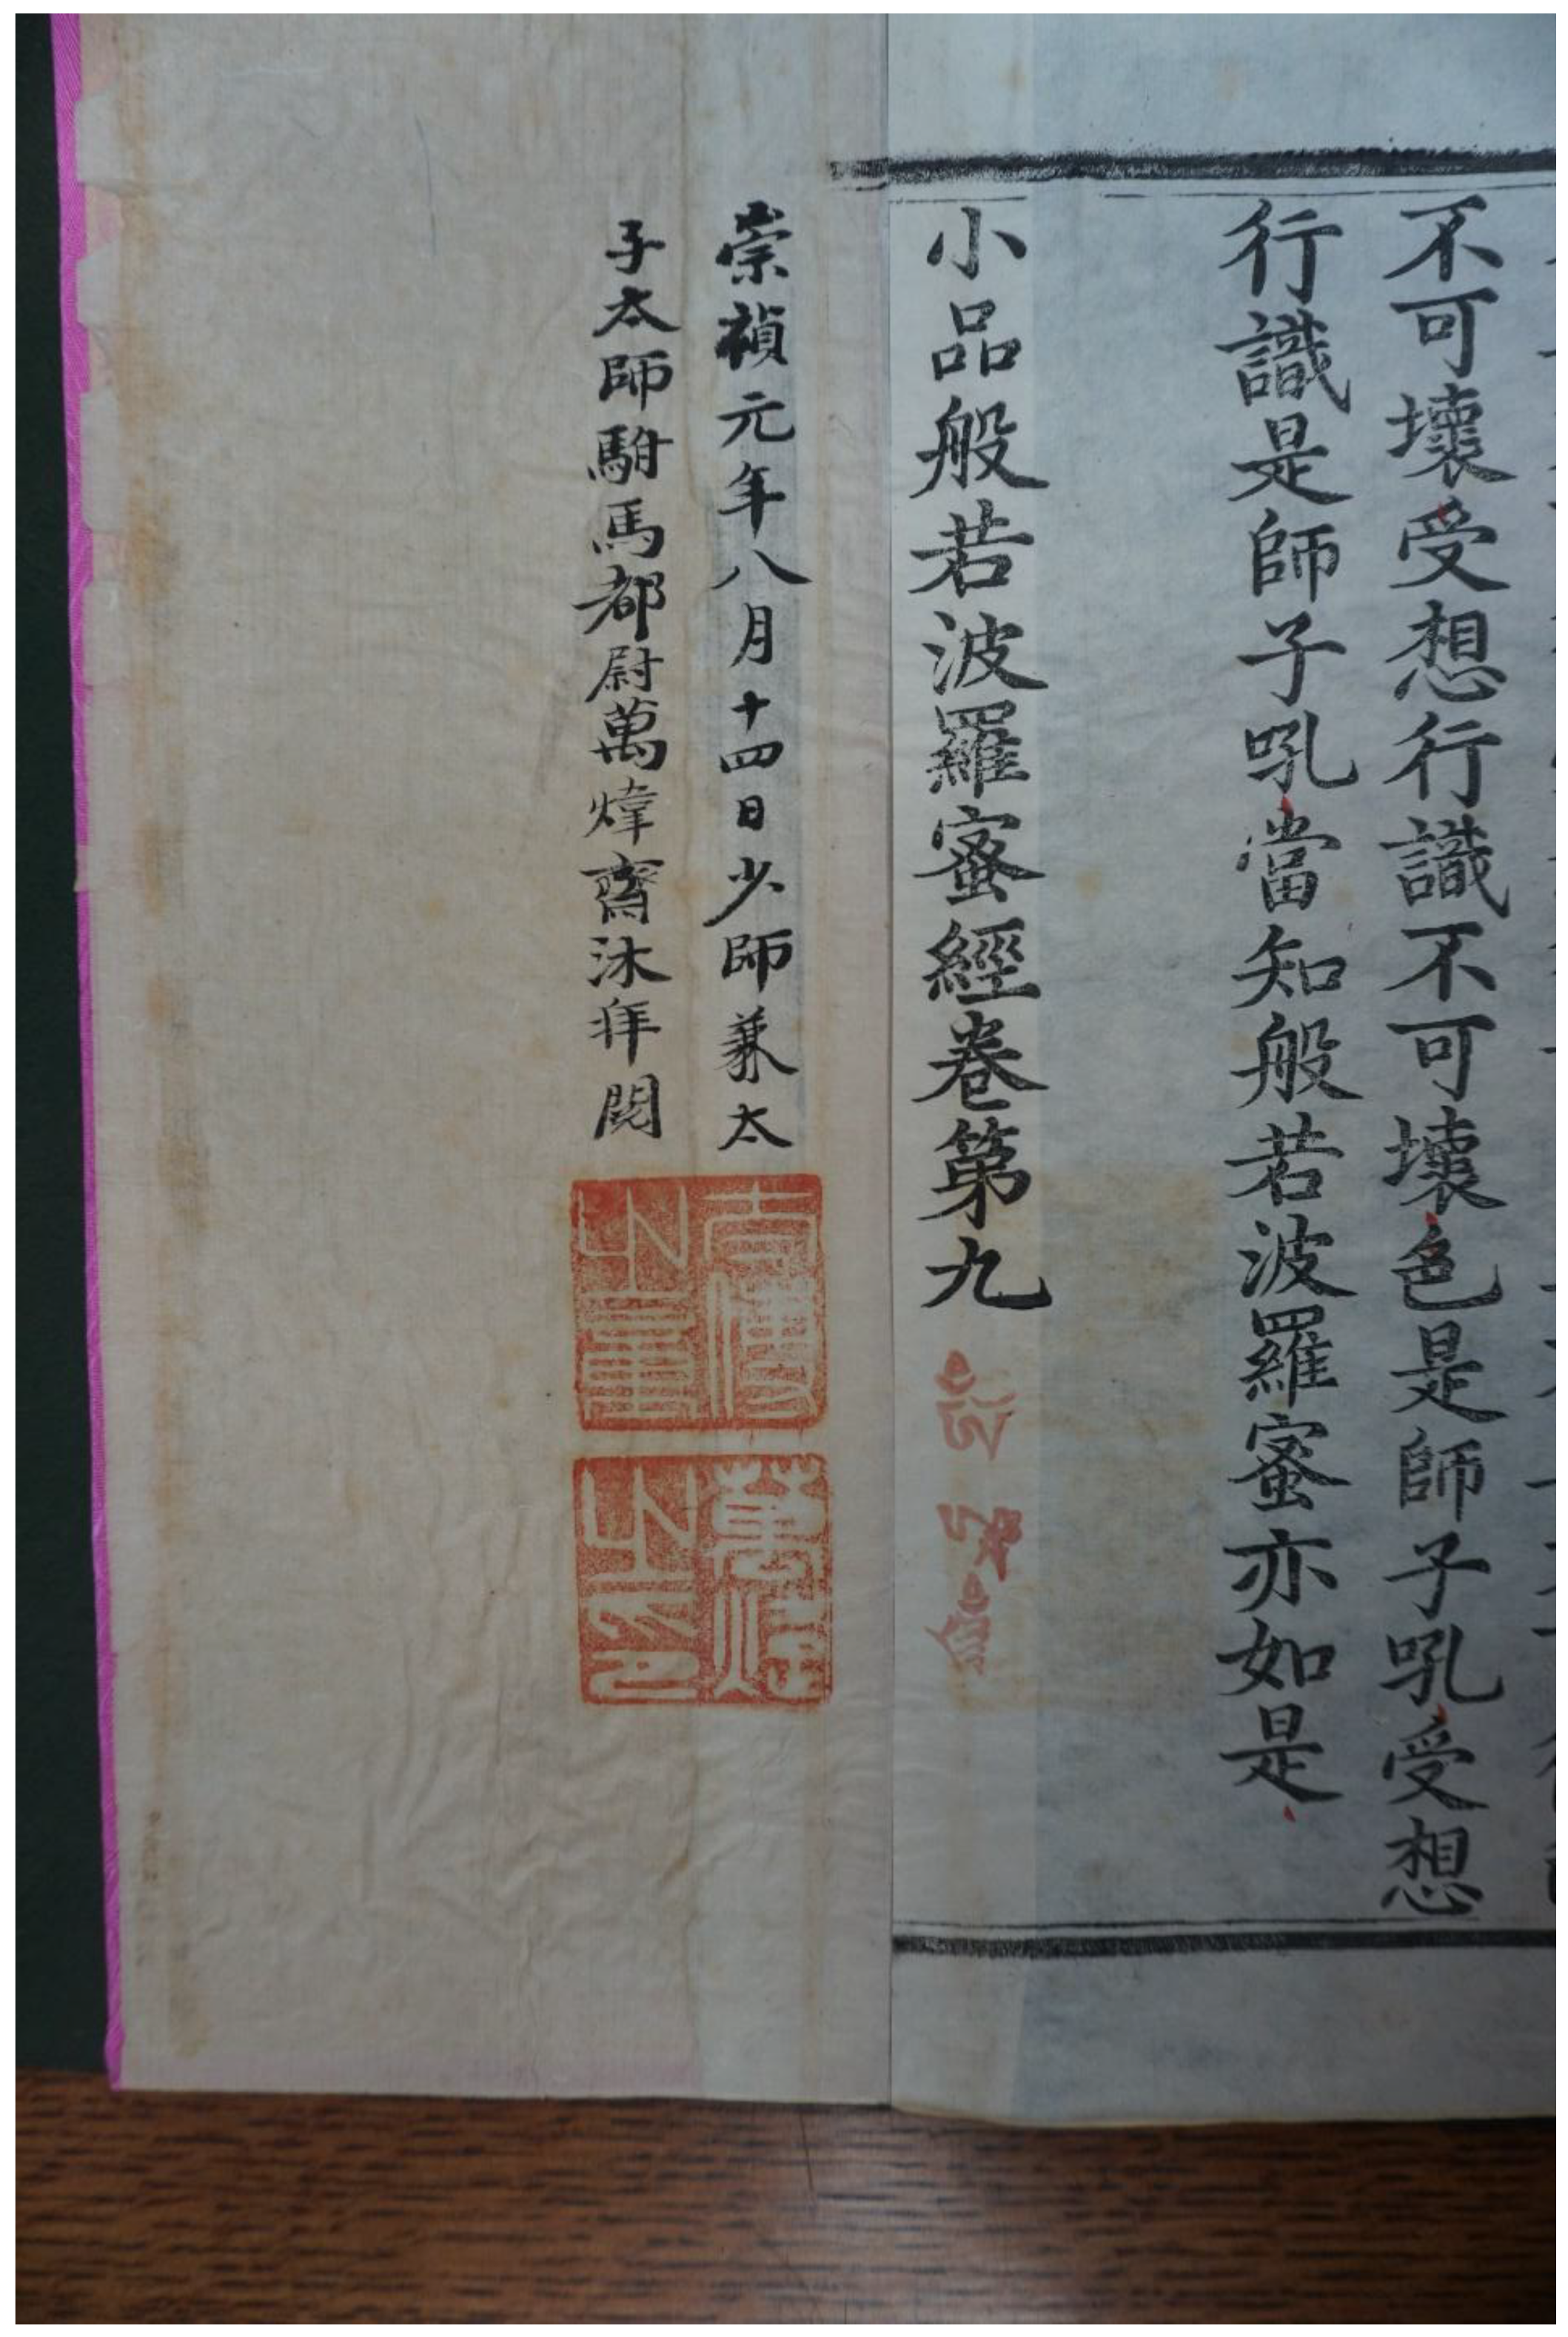 不可壞受想行識不可壞色是師子吼受想
行識是師子吼當知般若波羅蜜亦如是
小品般若波羅蜜經卷第九
崇禎元年八月十四日少師兼太
子太師駙馬都尉萬煒齋沐拜閱
太傅
之章
萬煒
之印